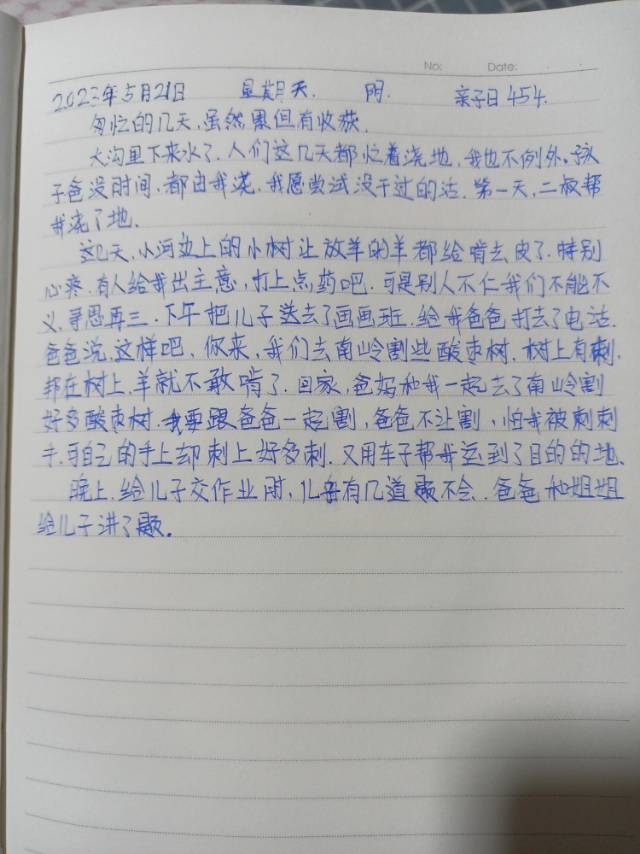 No:   Date:
2023年5月21日   星期天.   阴.   亲子日454.
匆忙的几天,虽然累但有收获.
大沟里下来水了.人们这几天都忙着浇地,我也不例外。孩
子爸没时间.都由我浇.我愿尝试没干过的活.第一天,二叔帮
我浇了地.
这几天.小河边上的小树让放羊的羊都给啃去皮了.特别
心疼.有人给我出主意,打上点药吧.可是别人不仁我们不能不
义.寻思再三.下午把儿子送去了画画班.给我爸爸打去了电话.
爸爸说.这样吧,你来,我们去南岭割些酸枣树.树上有刺.
绑在树上.羊就不敢啃了.回家,爸妈和我一起去了南岭割
好多酸枣树.我要跟爸爸一起割,爸爸不让割,怕我被刺刺
手.可自己的手上却刺上好多刺.又用车子帮我运到了目的的地.
晚上.给儿子交作业时,儿子有几道题不会.爸爸和姐姐
给儿子讲了题.